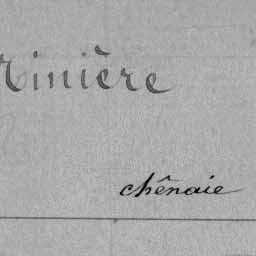 rinière
chênaie